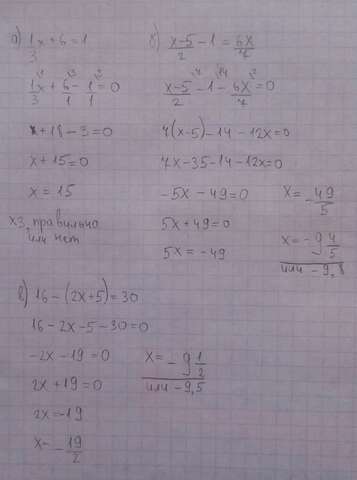 а) 1/3 x + 6 = 1
1/3 x + 6/1 - 1/1 = 0
x + 18 - 3 = 0
x + 15 = 0
x = 15
хз, правильно
или нет
б) x-5/2 - 1 = 6x/7
x-5/2 - 1 - 6x/7 = 0
7(x-5) - 14 - 12x = 0
7x - 35 - 14 - 12x = 0
-5x - 49 = 0
5x + 49 = 0
5x = -49
x = - 49/5
x = -9 4/5
или -9,8
в) 16 - (2x+5) = 30
16 - 2x - 5 - 30 = 0
-2x - 19 = 0
2x + 19 = 0
2x = -19
x = - 19/2
x = -9 1/2
или -9,5